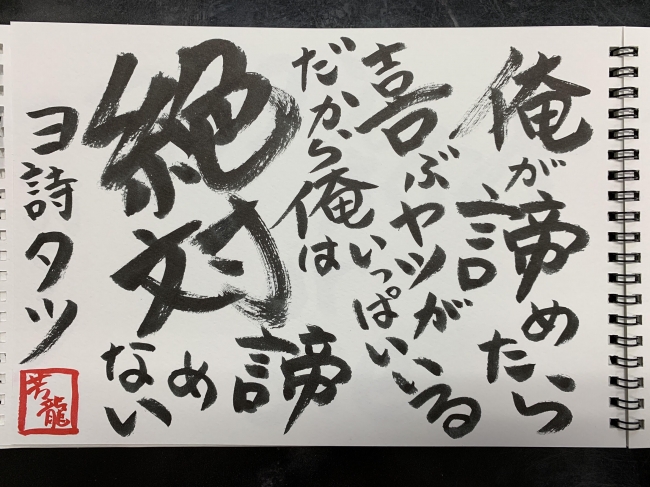 俺が諦めたら
喜ぶヤツがいっぱいいる
だから俺は
絶対
諦めない
ヨ詩タツ
龍